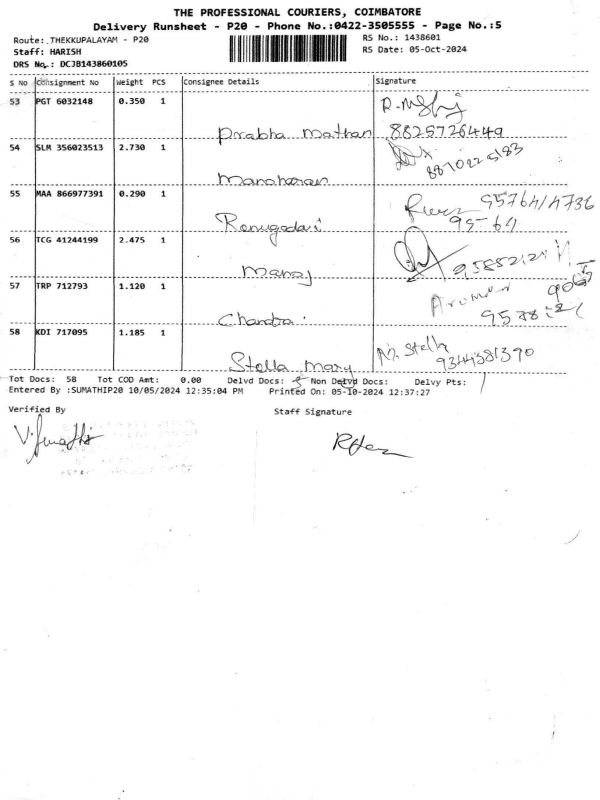 THE PROFESSIONAL COURIERS, COIMBATORE
Delivery Runsheet - P20 - Phone No.:0422-3505555 - Page No.:5
Route: THEKKUPALAYAM - P20 RS No.: 1438601
Staff: HARISH RS Date: 05-Oct-2024
DRS No.: DCJB143860105
S No Consignment No Weight PCS Consignee Details Signature
53 PGT 6032148 0.350 1
Prabha Mathan 8825726449
54 SLM 356023513 2.730 1
Manoharan
55 MAA 866977391 0.290 1
Renugadevi
56 TCG 41244199 2.475 1
Manoj
57 TRP 712793 1.120 1
Chandra
58 KDI 717095 1.185 1 M. Stella
Stella Mary 9344381390
Tot Docs: 58 Tot COD Amt: 0.00 Delvd Docs: Non Delvd Docs: Delvy Pts:
Entered By :SUMATHIP20 10/05/2024 12:35:04 PM Printed On: 05-10-2024 12:37:27
Verified By Staff Signature